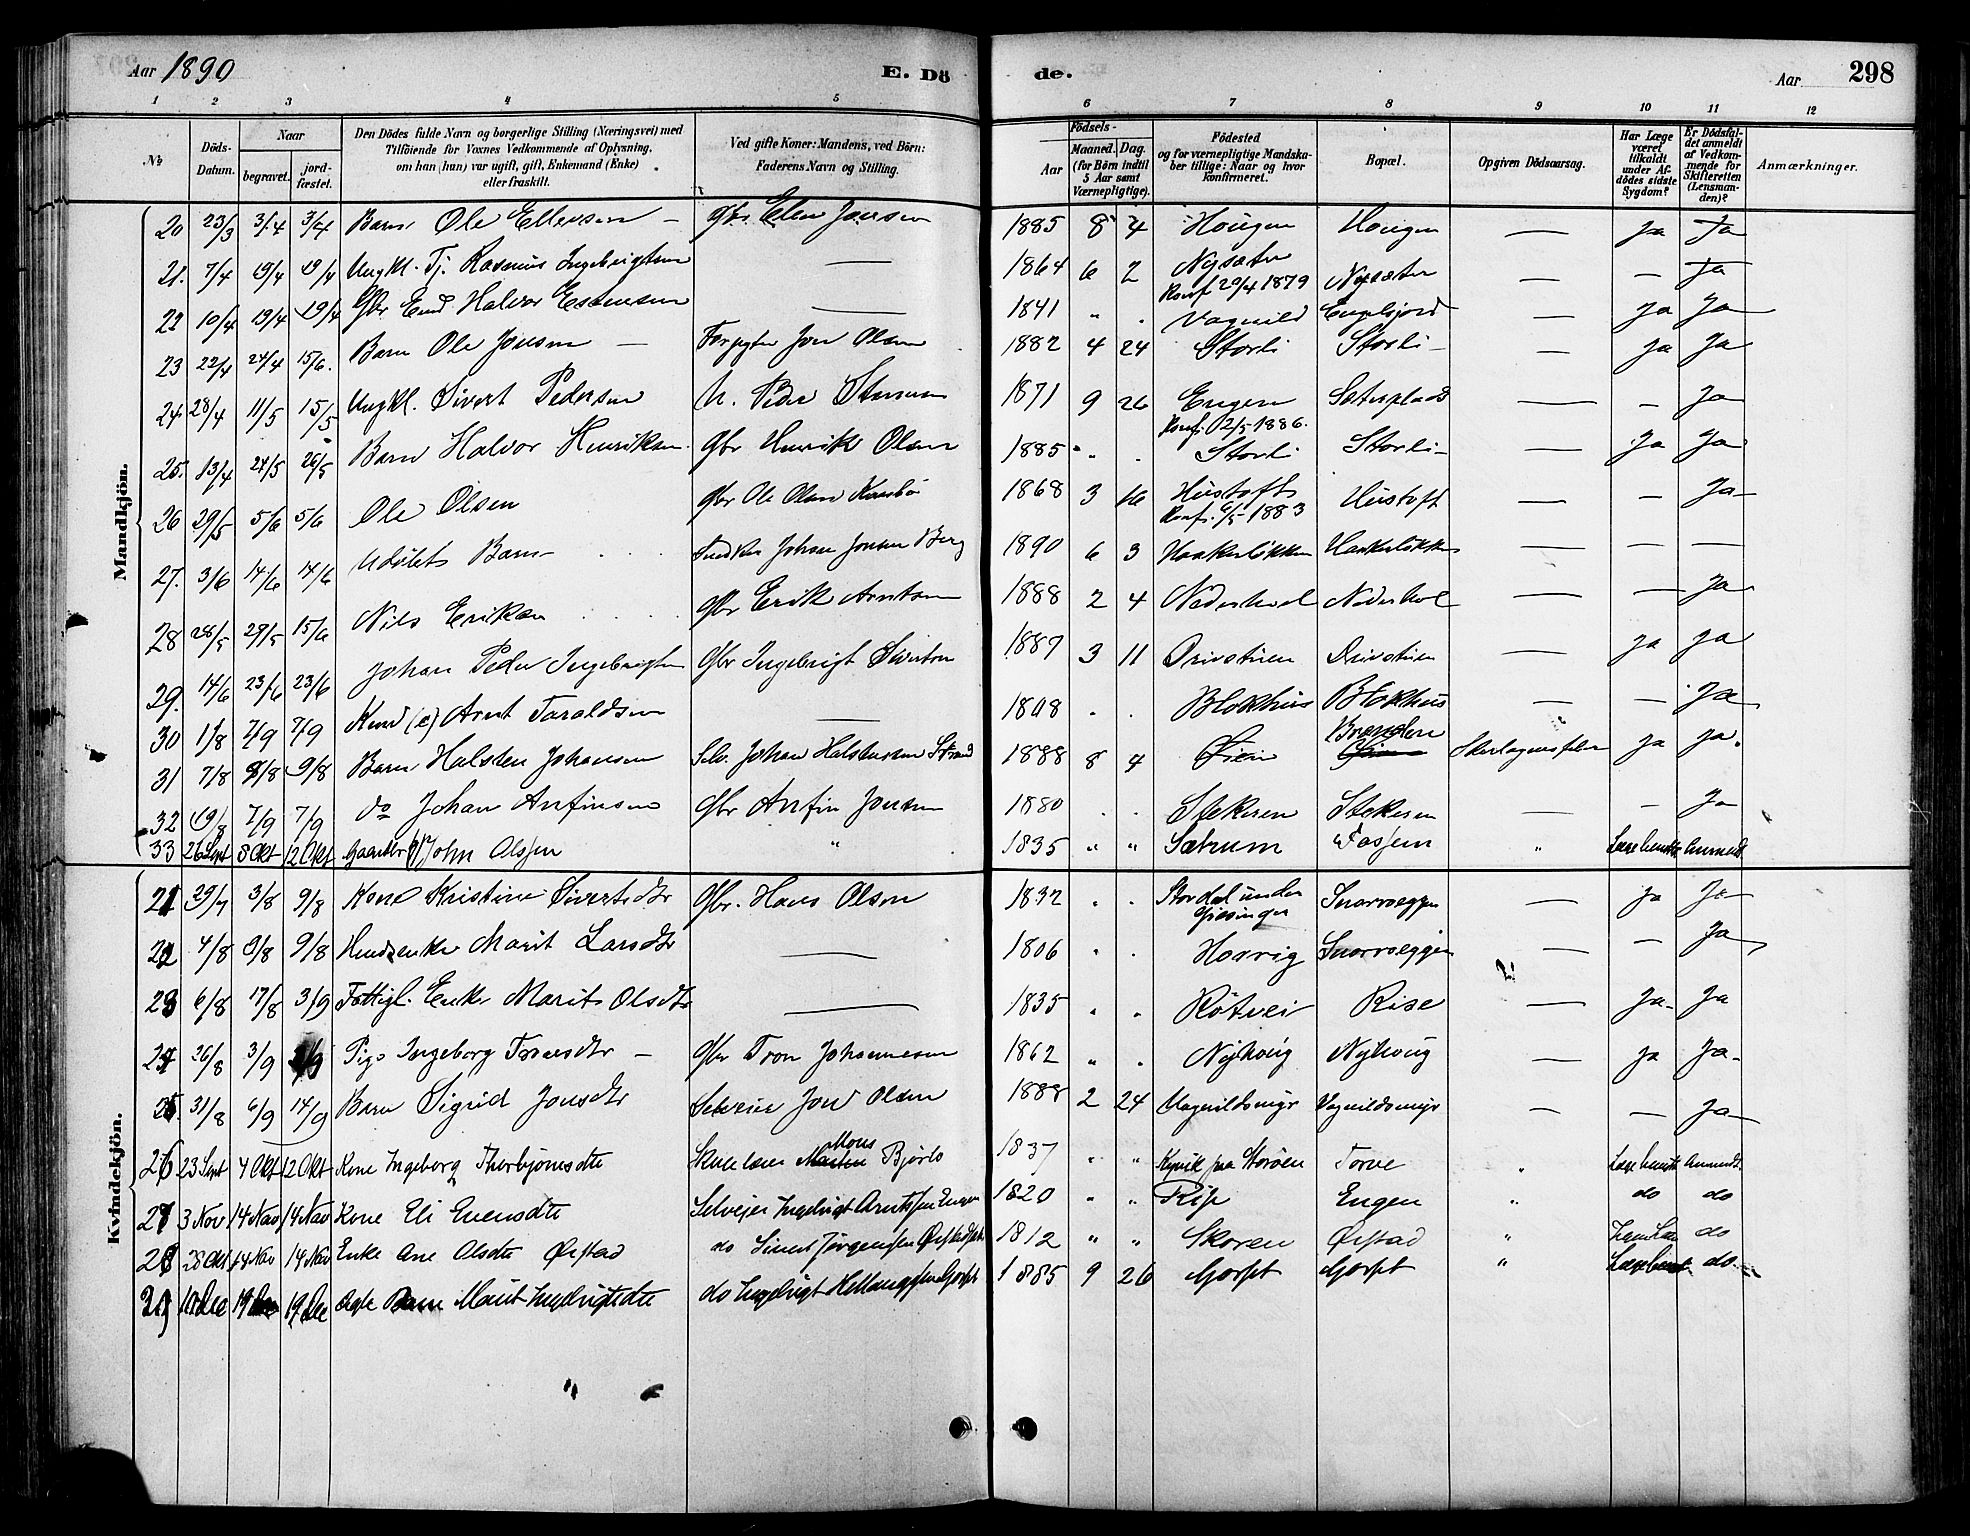 Aar 1890
E. Dö
de.
Aar
298
1 2 3 4 5 6 7 8 9 10 11 12
No
Döds-Datum.
Naar
begravet.
jordfæstet.
Den Dödes fulde Navn og borgerlige Stilling (Næringsvei) med
Tilföiende for Voxnes Vedkommende af Oplysning,
om han (hun) var ugift, gift, Enkemand (Enke)
eller fraskilt.
Ved gifte Koner: Mandens, ved Börn:
Faderens Navn og Stilling.
Födsels-
Aar
Maaned. Dag.
(for Börn indtil
5 Aar samt
Værnepligtige).
Födested
og for værnepligtige Mandska-
ber tillige: Naar og hvor
konfirmeret.
Bopæl.
Opgiven Dödsaarsag.
Har Læge
været
tilkaldt
under Af-
dödes sidste
Sygdom?
Er Dödsfal-
det anmeldt
af Vedkom-
mende for
Skifteretten
(Lensman-
den)?
Anmærkninger.
Mandkjön.
20 23/3 3/4 3/4 Barn Ole Ellensen — Gbr Elen Jonsen 1885 8 4 Hougen Hougen — Ja Ja
21. 7/4 19/4 19/4 Ungkl. Tj. Rasmus Ingebrigtsen — 1864 6 2 Nysæter Konf. 20/4 1879 Nysæter — — Ja
22 10/4 19/4 19/4 Gbr Halvor Esemsen — 1841 " . Vagnild Engelsjord — Ja Ja
23 22/4 27/4 15/6. Barn Ole Jonsen — Forpagter Jon Olsen 1882 4 24 Storli Storli — Ja Ja
24. 28/4 11/5 15/5 Ungkl. Sivert Pedersen Peder 1871 9 26 Engen Konf. 02/5 1886. Sæterplads — — Ja
25. 13/4 24/5 26/5 Barn Halvor Henriksen Gbr Henrik Olsen 1885 " . Storli Storli — Ja Ja
26 29/5 5/6 5/6 Ole Olsen Gbr Ole Olsen 1868 3 16 Hustoft Konf. 6/5 1883 Hustoft — — Ja
27. 3/6 14/6 14/6 Udöbt Barn Johan Jonsen Berg 1890 6 3 Haakerløkken Haakerløkken — — —
28 28/5 29/5 15/6 Nils Eriksen Gbr Erik Arntsen 1888 2 4 Nederhoel Nederhol — — Ja
29. 14/6 23/6 23/6 Johan Peder Ingebrigtsen Gbr Ingebrigt Sivertsen 1887 3 11 Drivstuen Drivstuen — Ja Ja
30 1/8 7/9 7/9 (e) Arnt Taraldsen — 1808 . . Blokhus Blokhus — — Ja
31 7/8 9/8 9/8 Barn Halsten Johansen Selv. Johan Halstensen Strand 1888 8 4 Øien Brenden Skarlagensfeber Ja Ja.
32 19/8 7/9 7/9 do Johan Anfinsen Gbr Anfin Jonsen 1880 . . Stekeren Stekeren — — Ja
33 26 Sept 8 Okt 12 Okt Gaardbr John Olsen " 1835 " " Sætrum Fossem " Læge benyttet Anmeldt.
Kvindekjön.
21 29/7 3/8 9/8 Kone Kristine Sivertsdtr Gbr. Hans Olsen 1832 . . Stordal under Snarveggen — Ja Ja
22 4/8 9/8 9/8 Marit Larsdtr — 1806 . . Horvig Snarveggen — — Ja
23 6/8 17/8 3/9 Fattigl. Enke Marit Olsdtr — 1835 . . Røtvei Rise — Ja Ja
24 26/8 3/9 Pige Ingeborg Tronsdtr — Gbr Tron Johannesen 1862 " . Nyhoug Nyhoug — Ja Ja
25. 31/8 6/9 14/9 Barn Sigrid Jonsdtr Selveier Jon Olsen 1888 2 24 Vagnildsmyr Vagnildsmyr — — Ja
26 23 Sept 4 Okt 12 Okt Kone Ingeborg Thorbjörnsdtr Skolelærer Mons Bjørlo 1837 " " paa Storöen Torve " Læge benyttet Anmeldt.
27 3 Nov 14 Nov 14 Nov Kone Eli Evensdtr Selvejer Ingebrigt Arntsen Engen 1820 " " Rise Engen " do do
28 28 Okt 14 Nov 14 Nov Enke Ane Olsdtr Ørstad do Sivert Jørgensen 1812 " " Skoren Ørstad " do
29 10 Dec 19 Dec 19 Dec Barn Marit Ingebrigtsdtr do Ingebrigt 1885 9 26 Gorset Gorset " Læge benyttet do